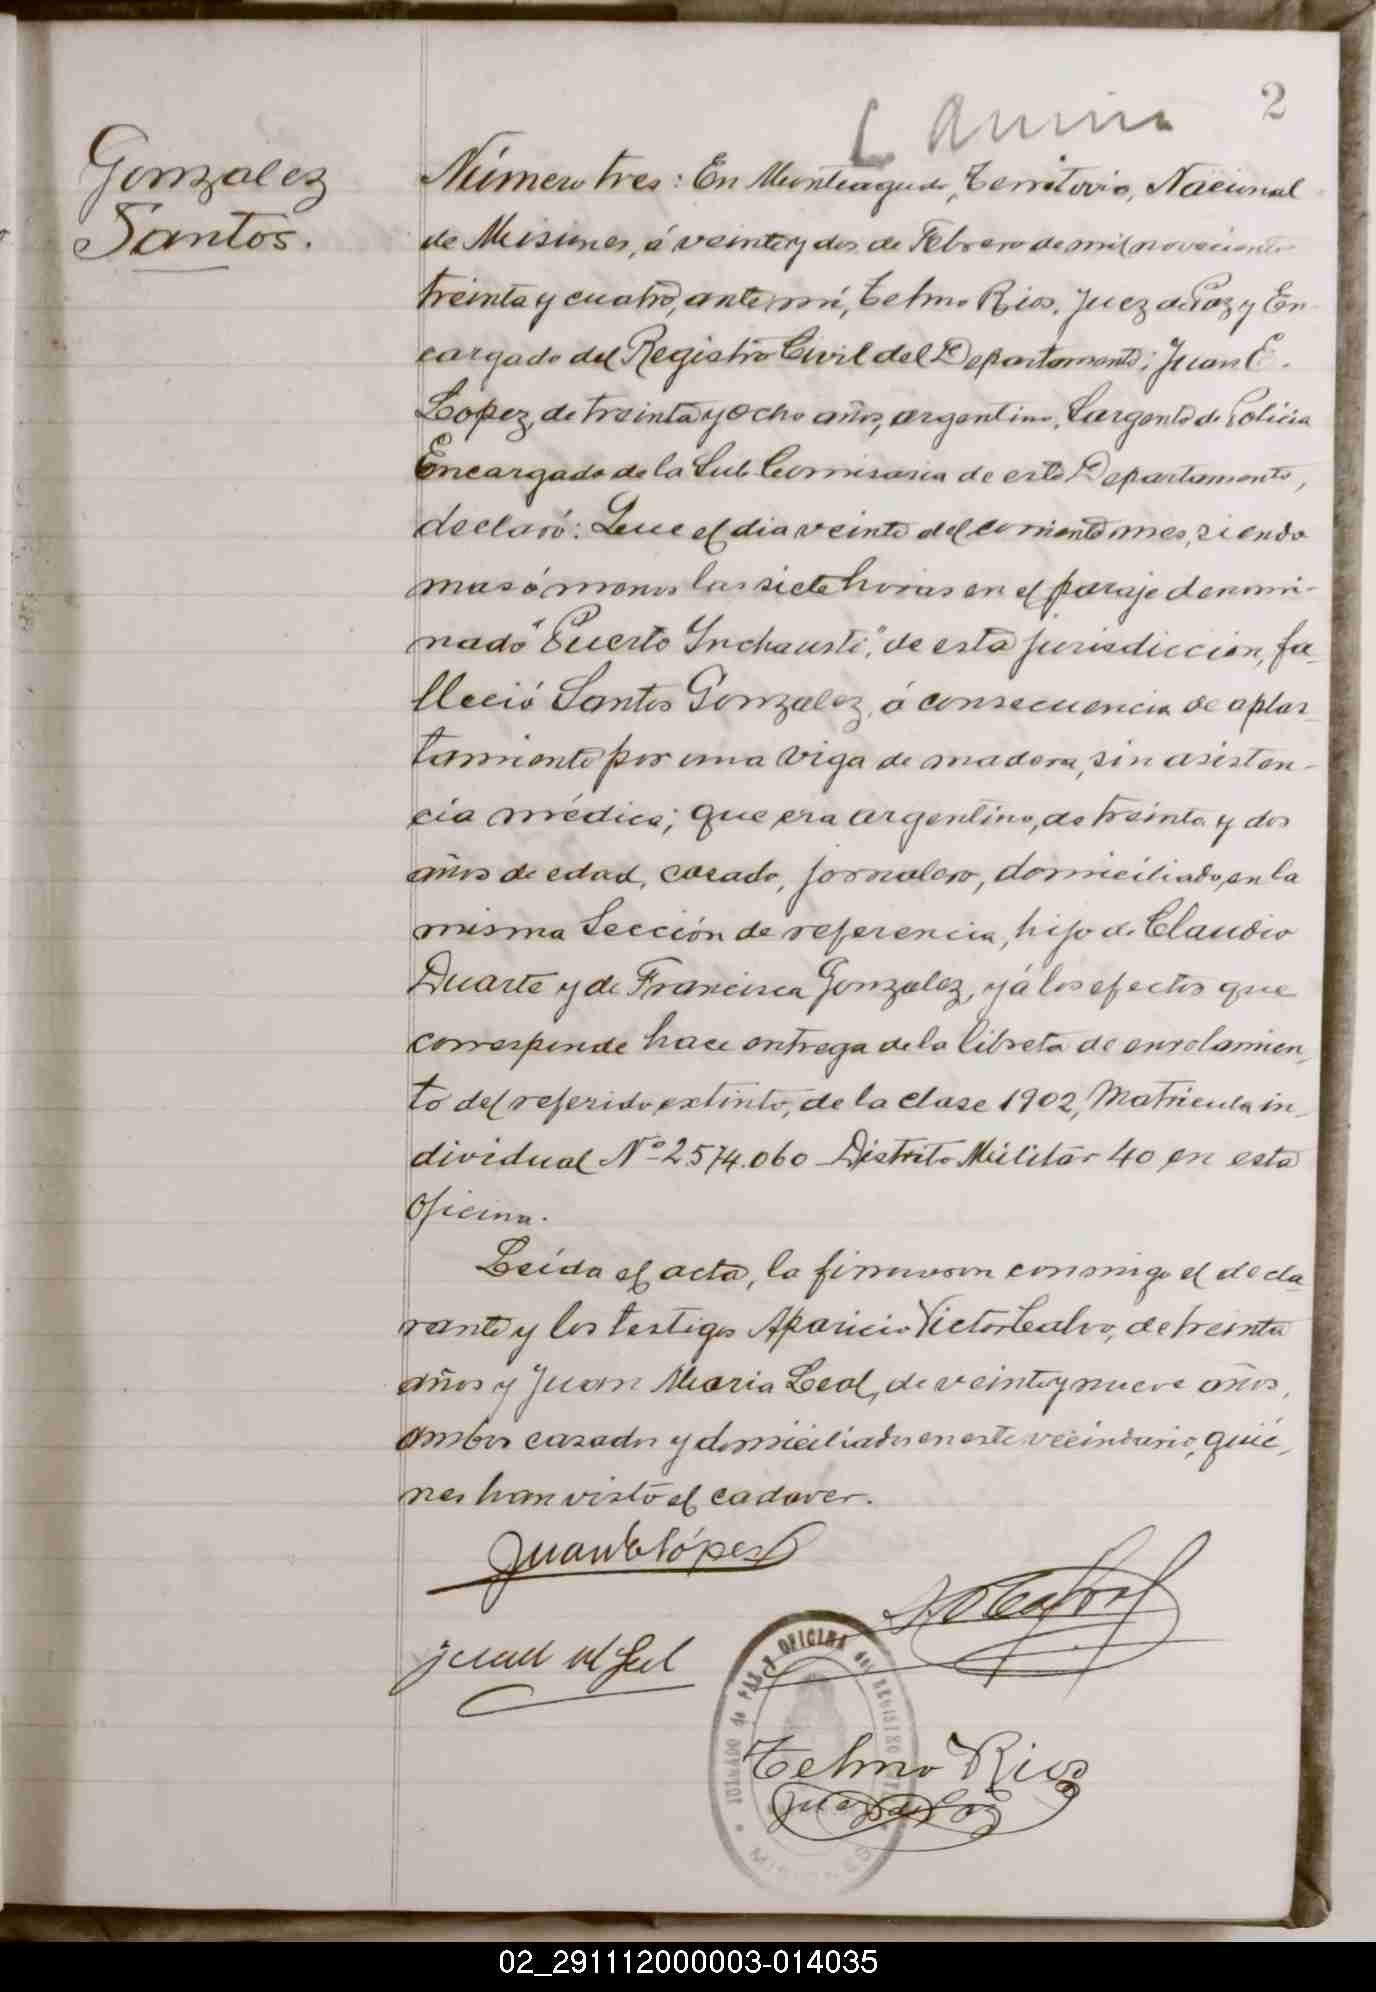 2
Gonzalez
Santos.
Número tres: En Monteagudo, Territorio, Nacional
de Misiones, á veinte y dos de Febrero de mil novecientos
treinta y cuatro, ante mí, Telmo Rios, Juez de Paz y En-
cargado del Registro Civil del Departamento; Juan E.
Lopez, de treinta y ocho años, argentino, Sargento de Policia
Encargado de la Sub Comisaria de este Departamento,
declaró: Que el dia veinte del corriente mes, siendo
mas ó menos las siete horas en el paraje denomi-
nado "Puerto Inchausti," de esta jurisdiccion, fa-
lleció Santos Gonzalez, á consecuencia de aplas-
tamiento por una viga de madera, sin asisten-
cia médica; que era argentino, de treinta y dos
años de edad, casado, jornalero, domiciliado, en la
misma Sección de referencia, hijo de Claudio
Duarte y de Francisca Gonzalez, y á los efectos que
corresponde hace entrega de la libreta de enrolamien-
to del referido extinto, de la clase 1902, Matricula in-
dividual Nº 2.574.060 Distrito Militar 40 en esta
Oficina.
Leída el acta, la firmaron conmigo el decla-
rante y los testigos Aparicio Victor Calvo, de treinta
años y Juan Maria Leal, de veinte y nueve años,
ambos casados y domiciliados en este vecindario, quie-
nes han visto el cadaver.
Juan E López
Juan M Leal
JUZGADO de PAZ y OFICINA del REGISTRO CIVIL
MISIONES
Telmo Rios
Juez de Paz
02_291112000003-014035